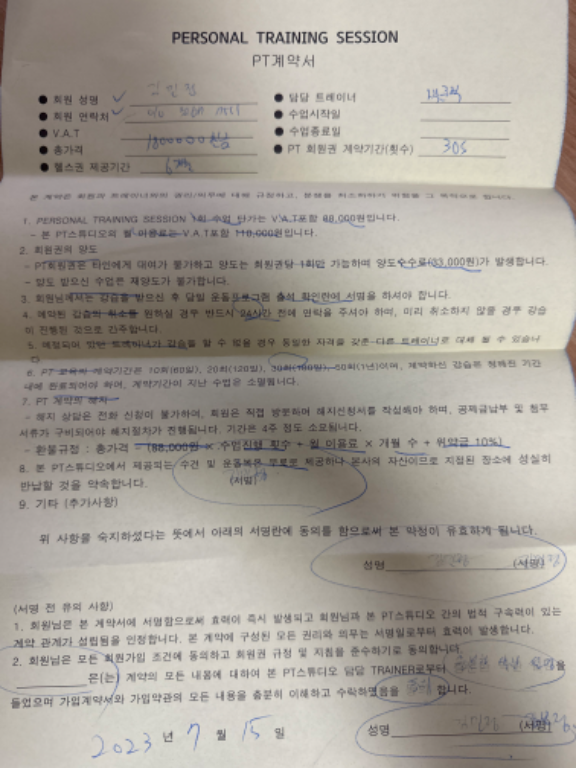 PERSONAL TRAINING SESSION
PT계약서
● 회원 성명
● 담당 트레이너
● 회원 연락처
● 수업시작일
● V.A.T
● 수업종료일
● 총가격 1800000
● PT 회원권 계약기간(횟수) 30
● 헬스권 제공기간 6개월
본 계약은 회원과 트레이너와의 권리/의무에 대해 규정하고, 분쟁을 최소화하기 위함을 그 목적으로 합니다.
1. PERSONAL TRAINING SESSION 1회 수업 단가는 V.A.T포함 88,000원입니다.
- 본 PT스튜디오의 월 이용료는 V.A.T포함 110,000원입니다.
2. 회원권의 양도
- PT회원권은 타인에게 대여가 불가하고 양도는 회원권당 1회만 가능하며 양도수수료(33,000원)가 발생합니다.
- 양도 받으신 수업은 재양도가 불가합니다.
3. 회원님께서는 강습을 받으신 후 당일 운동프로그램 출석 확인란에 서명을 하셔야 합니다.
4. 예약된 강습의 취소를 원하실 경우 반드시 24시간 전에 연락을 주셔야 하며, 미리 취소하지 않을 경우 강습
이 진행된 것으로 간주합니다.
5. 예정되어 있던 트레이너가 강습을 할 수 없을 경우 동일한 자격을 갖춘 다른 트레이너로 대체 될 수 있습니
다
6. PT 교육의 계약기간은 10회(60일), 20회(120일), 30회(180일), 60회(1년)이며, 계약하신 강습은 정해진 기간
내에 완료되어야 하며, 계약기간이 지난 수업은 소멸됩니다.
7. PT 계약의 해지
- 해지 상담은 전화 신청이 불가하여, 회원은 직접 방문하여 해지신청서를 작성해야 하며, 공제금납부 및 첨부
서류가 구비되어야 해지절차가 진행됩니다. 기간은 4주 정도 소요됩니다.
- 환불규정 : 총가격 - (88,000원 × 수업진행 횟수 + 월 이용료 × 개월 수 + 위약금 10%)
8. 본 PT스튜디오에서 제공되는 수건 및 운동복은 무료로 제공하나 본사의 자산이므로 지정된 장소에 성실히
반납할 것을 약속합니다. (서명)
9. 기타 (추가사항)
위 사항을 숙지하셨다는 뜻에서 아래의 서명란에 동의를 함으로써 본 약정이 유효하게 됩니다.
성명 (서명)
(서명 전 유의 사항)
1. 회원님은 본 계약서에 서명함으로써 효력이 즉시 발생되고 회원님과 본 PT스튜디오 간의 법적 구속력이 있는
계약 관계가 성립됨을 인정합니다. 본 계약에 구성된 모든 권리와 의무는 서명일로부터 효력이 발생합니다.
2. 회원님은 모든 회원가입 조건에 동의하고 회원권 규정 및 지침을 준수하기로 동의합니다.
은(는) 계약의 모든 내용에 대하여 본 PT스튜디오 담당 TRAINER로부터 충분한 설명을
들었으며 가입계약서와 가입약관의 모든 내용을 충분히 이해하고 수락하였음을 합니다.
2023 년 7 월 15 일
성명 (서명)